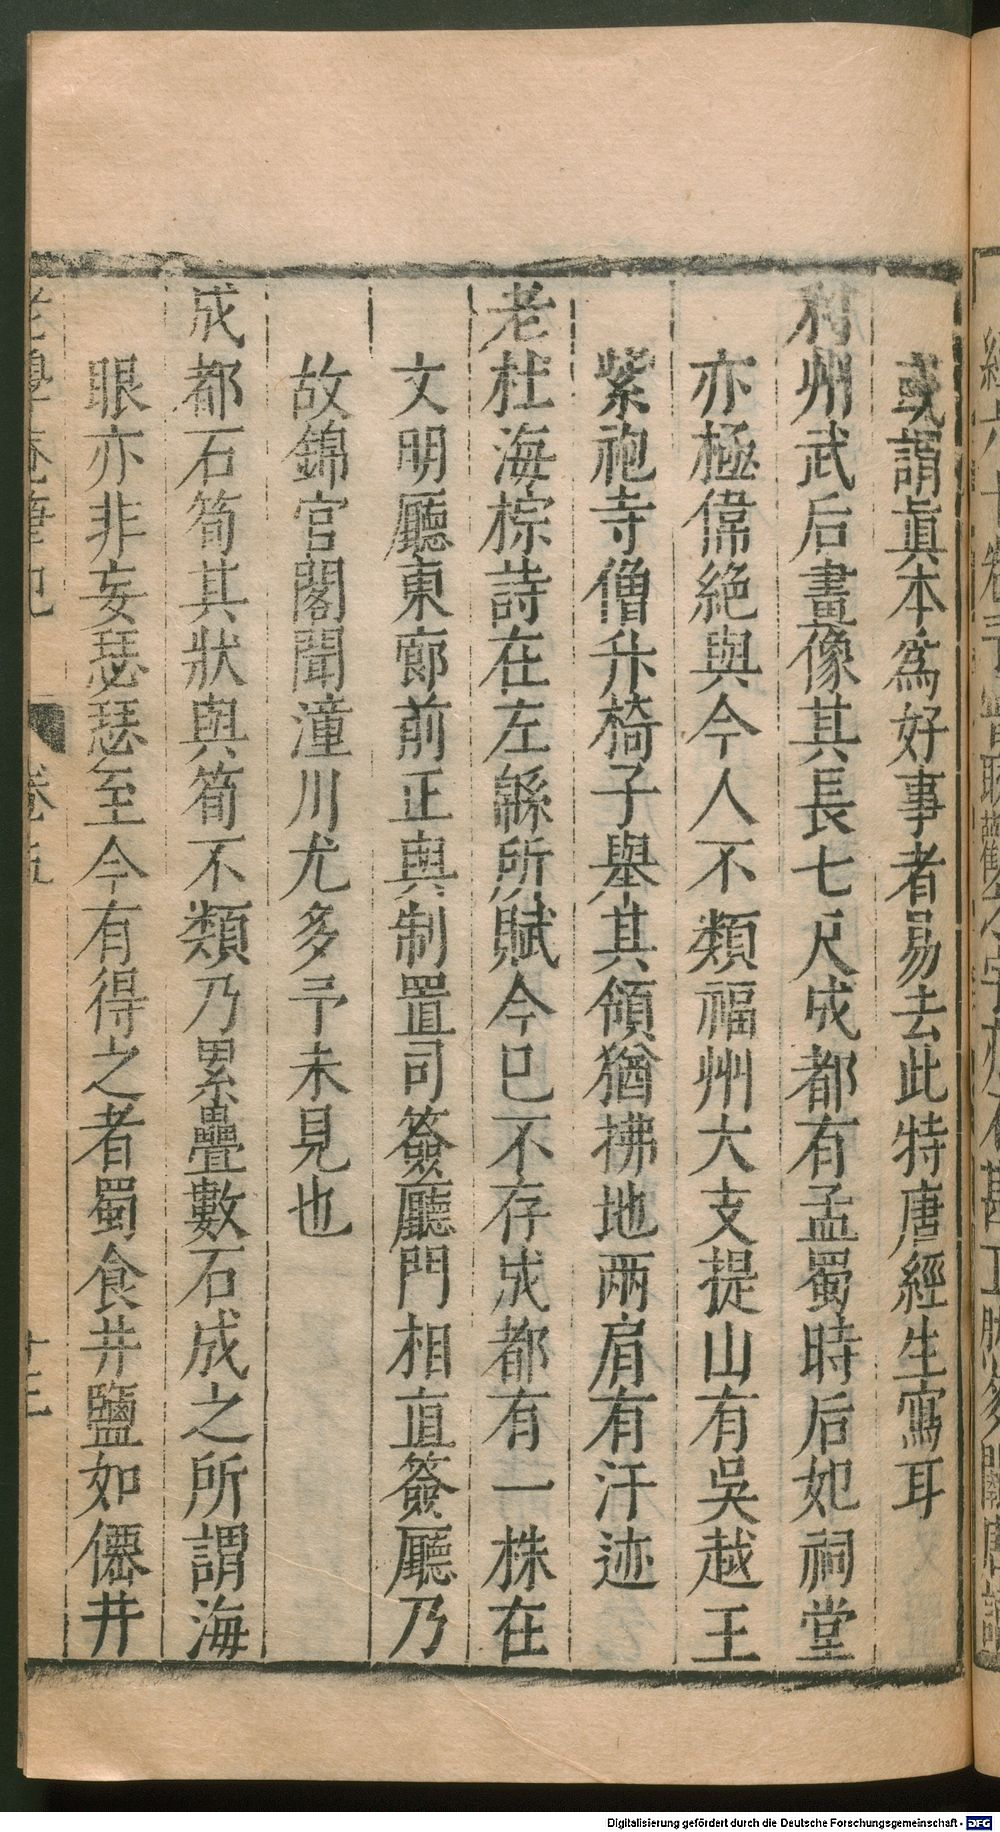 或謂眞本爲好事者易去此特唐經生寫耳
利州武后畫像其長七尺成都有孟蜀時后妃祠堂
亦極偉絶與今人不類福州大支提山有吳越王
紫袍寺僧升椅子舉其領猶拂地兩肩有汗迹
老杜海棕詩在左緜所賦今已不存成都有一株在
文明廳東廊前正與制置司簽廳門相直簽廳乃
故錦官閣聞潼川尤多予未見也
成都石筍其狀與筍不類乃累疊數石成之所謂海
眼亦非妄瑟瑟至今有得之者蜀食井鹽如僊井
老學庵筆記 卷五 十三
Digitalisierung gefördert durch die Deutsche Forschungsgemeinschaft - DFG